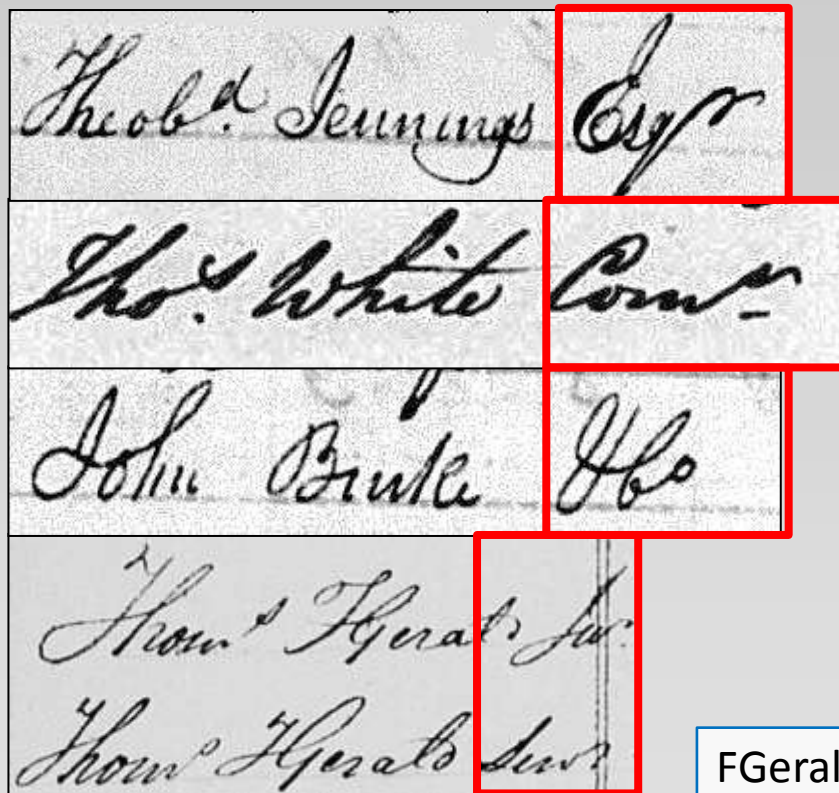 Theobd. Jennings Esqr
Thos. White Comr
John Burke
Thoms FGerald Jur.
Thoms FGerald Senr
FGeral